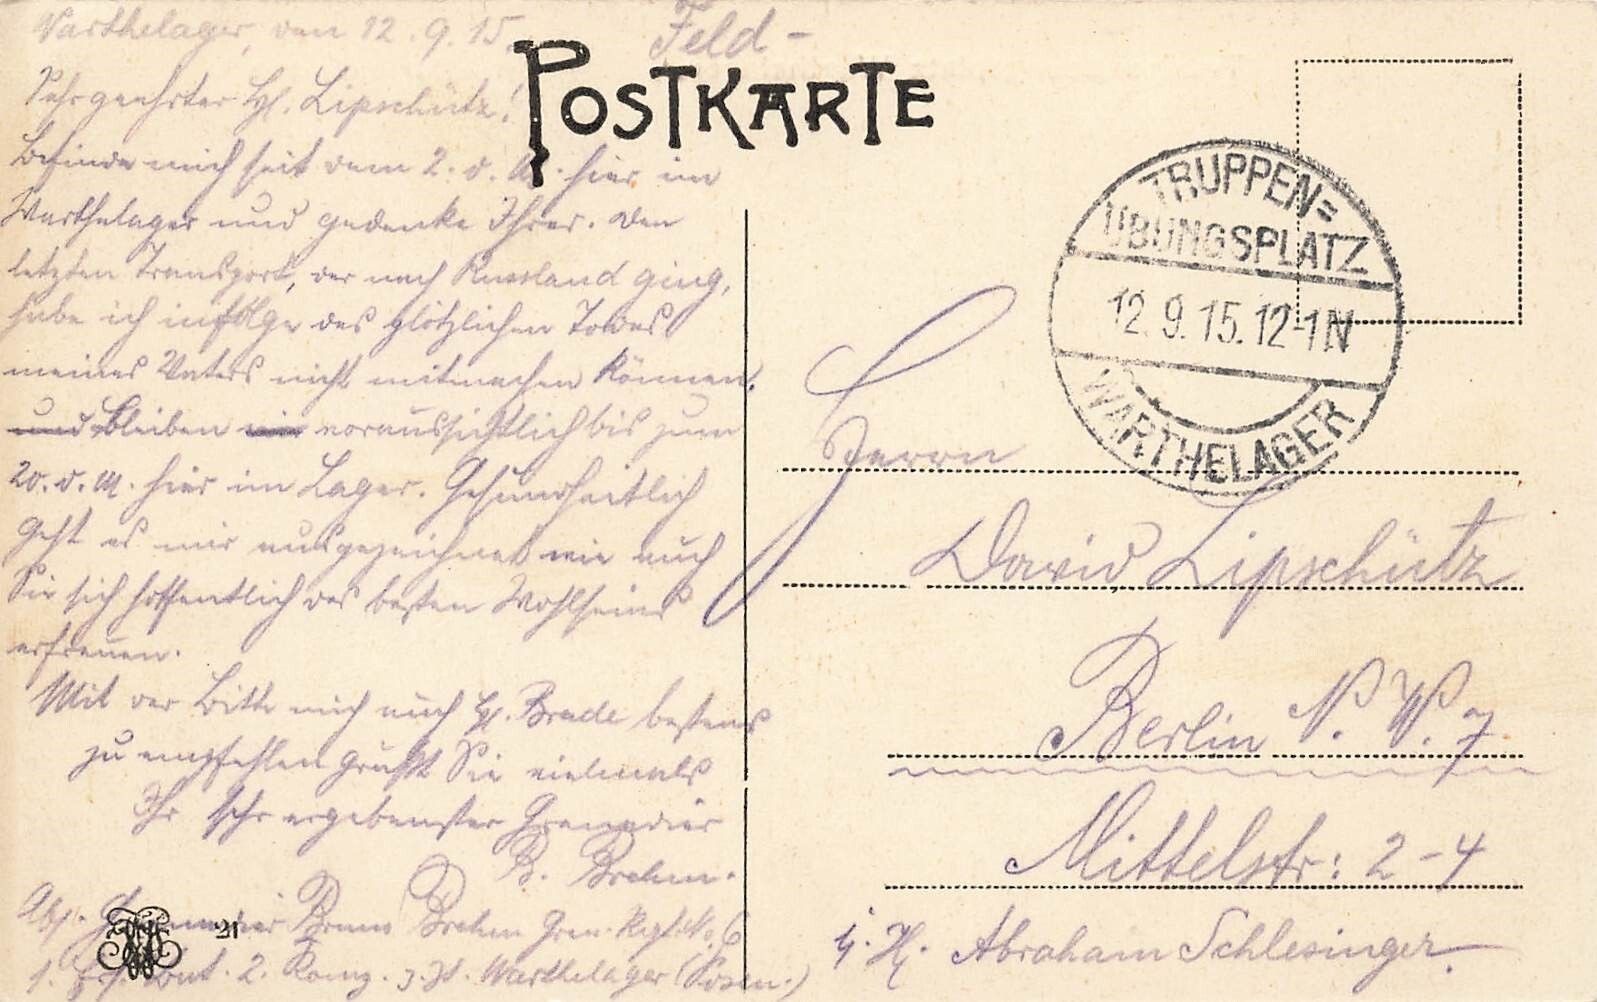 Warthelager, den 12.9.15.
Feld-
POSTKARTE
Sehrgeehrter H. Lipschütz!
Befinde mich seit dem 2. d. M. hier im
Warthelager und gedenke Ihrer. Den
letzten Transport, der nach Russland ging,
habe ich infolge des plötzlichen Todes
meines Vaters nicht mitmachen können.
und bleiben voraussichtlich bis zum
20. d. M. hier im Lager. Gesundheitlich
geht es mir ausgezeichnet wie auch
Sie sich hoffentlich des besten Wohlseins
erfreuen.
Mit der Bitte mich auch H. Brade bestens
zu empfehlen grüßt Sie vielmals
Ihr sehr ergebenster Grenadier
B. Brehm.
Abs. Grenadier Bruno Brehm Gren. Regt. No. 6
1. Ers. Bat. 2. Komp. z. Zt. Warthelager (Posen.)
21
TRUPPEN=
ÜBUNGSPLATZ
12.9.15.12-1N
WARTHELAGER
Herrn
David Lipschütz
Berlin N.W.7
Mittelstr: 2-4
i. H. Abraham Schlesinger.